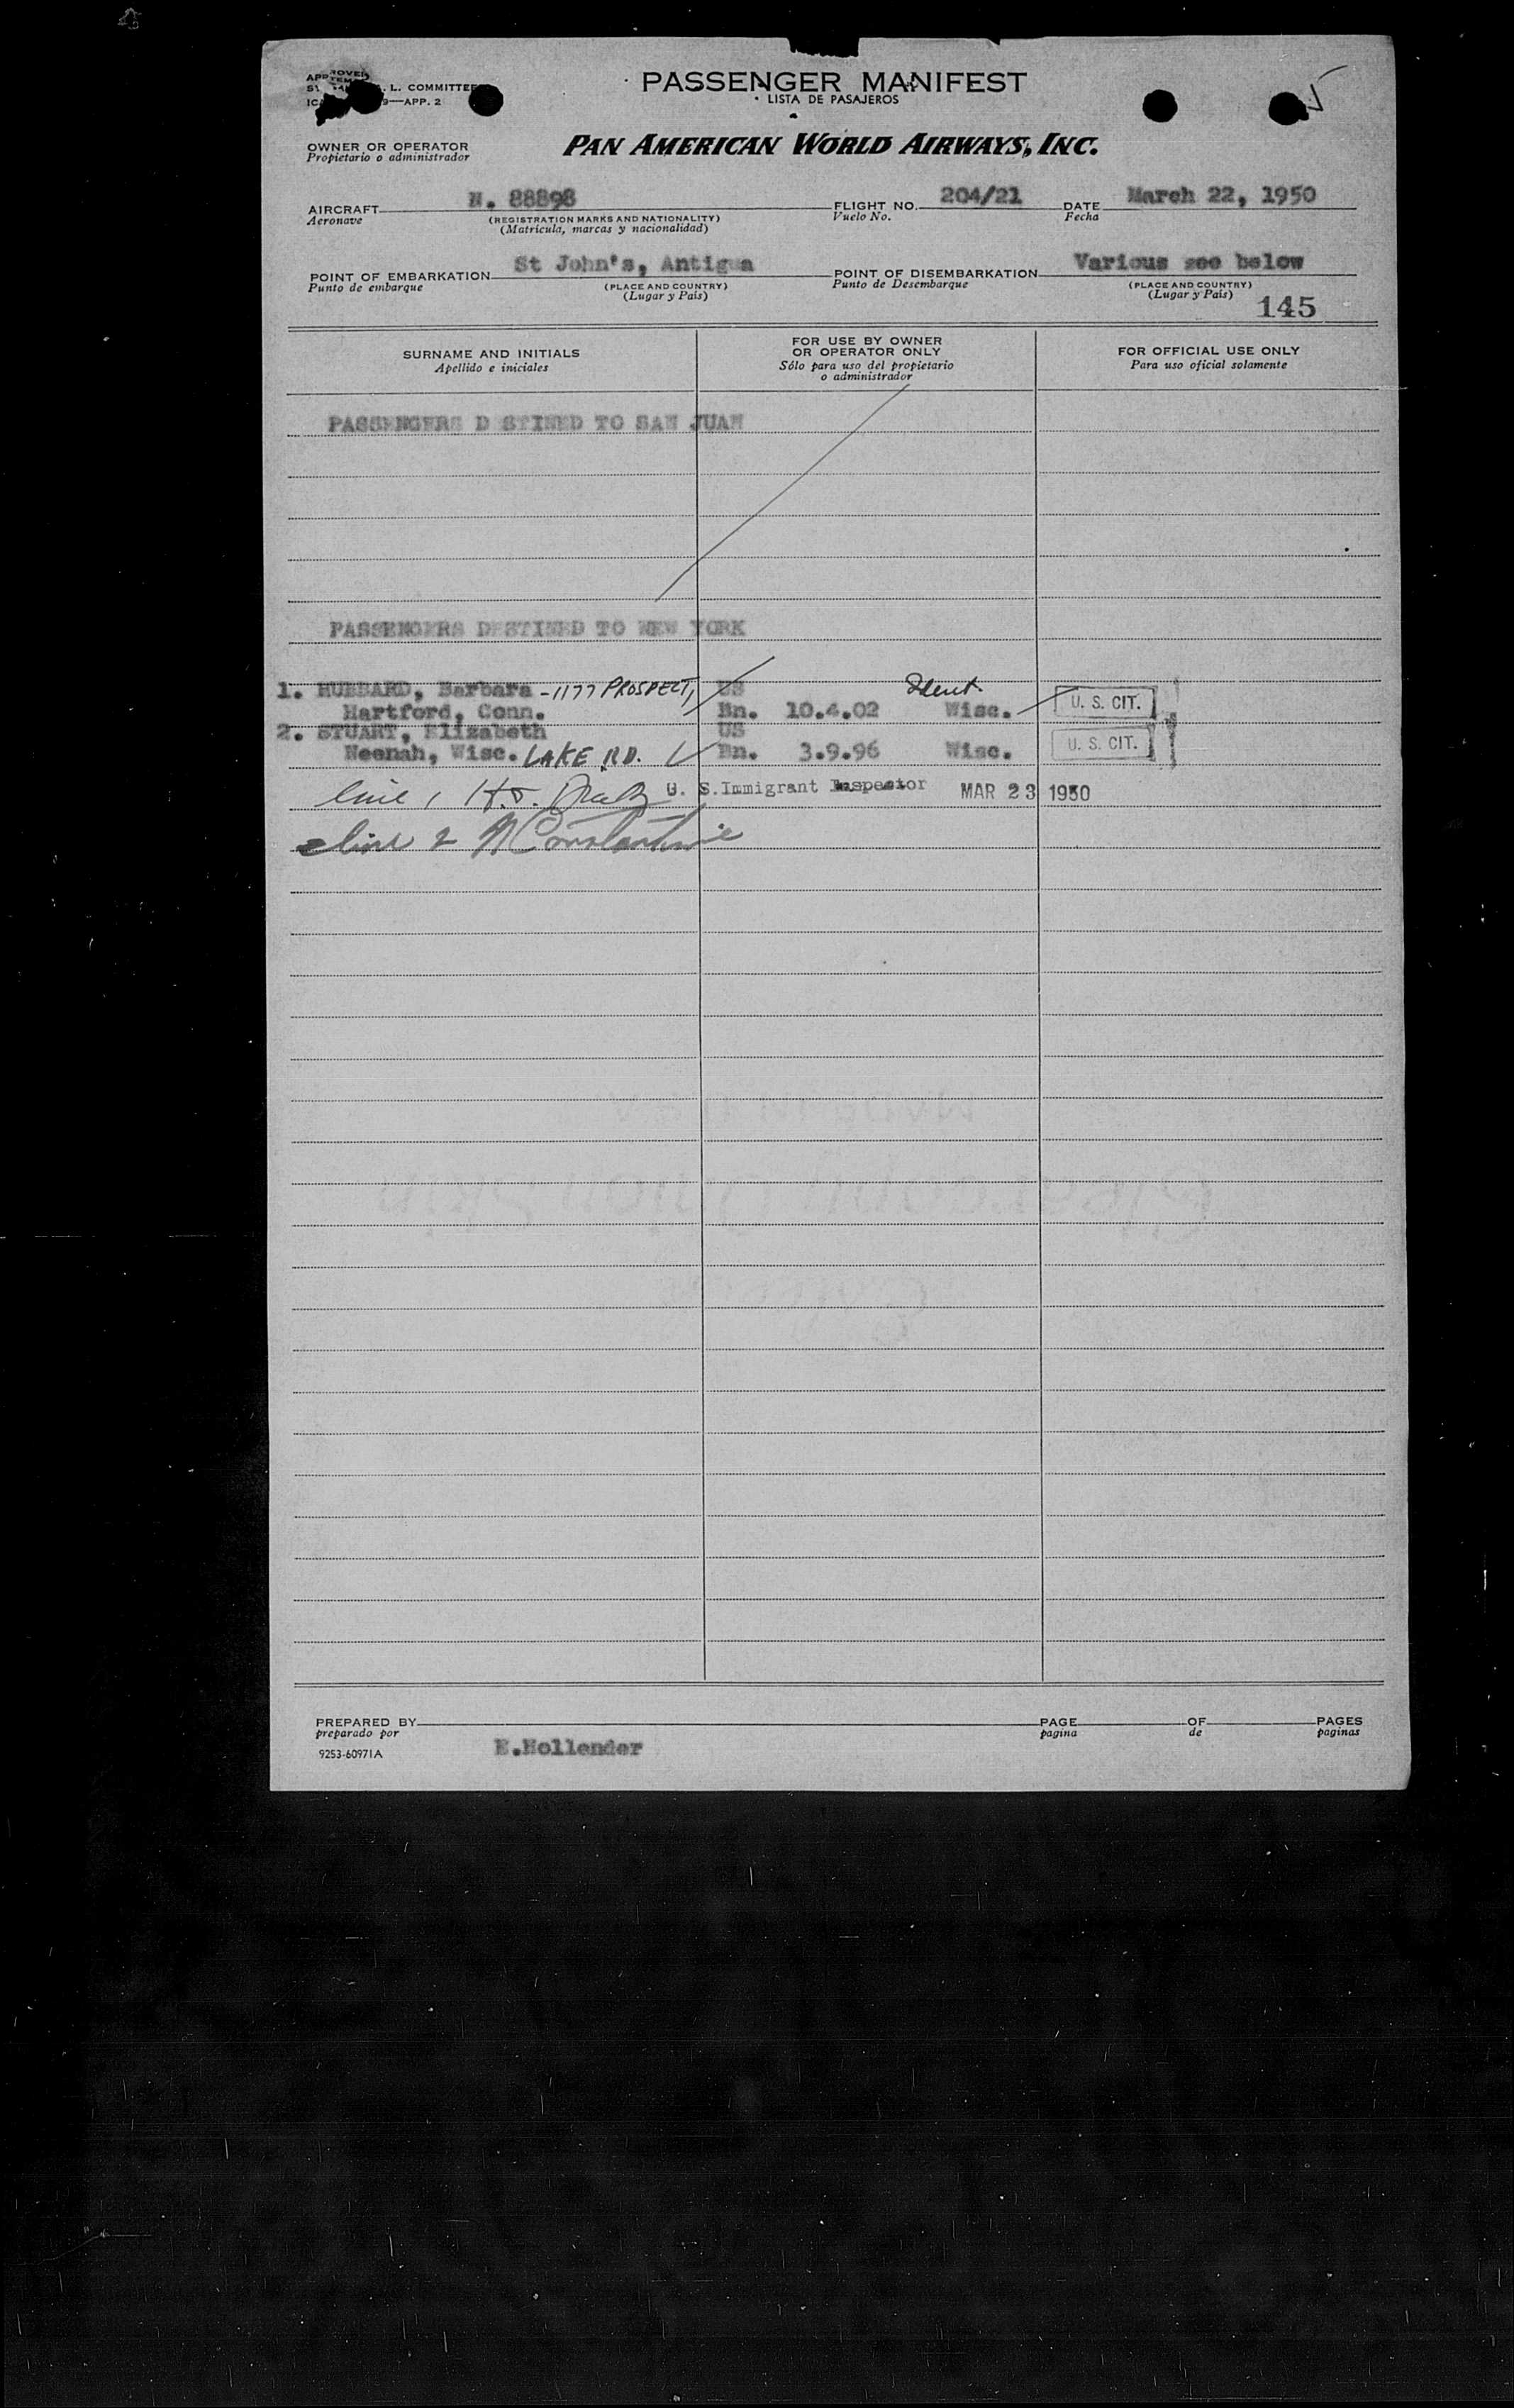 PASSENGER MANIFEST
LISTA DE PASAJEROS
L. COMMITTEE
9—APP. 2
OWNER OR OPERATOR
Propietario o administrador
PAN AMERICAN WORLD AIRWAYS, INC.
AIRCRAFT N. 88898 FLIGHT NO. 204/21 DATE March 22, 1950
Aeronave (REGISTRATION MARKS AND NATIONALITY) Vuelo No. Fecha
(Matrícula, marcas y nacionalidad)
POINT OF EMBARKATION St John's, Antigua POINT OF DISEMBARKATION Various see below
Punto de embarque (PLACE AND COUNTRY) Punto de Desembarque (PLACE AND COUNTRY)
(Lugar y País) (Lugar y País) 145
SURNAME AND INITIALS FOR USE BY OWNER OR OPERATOR ONLY FOR OFFICIAL USE ONLY
Apellido e iniciales Sólo para uso del propietario o administrador Para uso oficial solamente
PASSENGERS D STINED TO SAN JUAN
PASSENGERS DESTINED TO NEW YORK
1. HUBBARD, Barbara -1177 PROSPECT, US
Hartford, Conn. Bn. 10.4.02 Wisc. U. S. CIT.
2. STUART, Elizabeth US
Neenah, Wisc. LAKE RD. Bn. 3.9.96 Wisc. U. S. CIT.
Line 1 H.J. U. S. Immigrant Inspector MAR 23 1950
Line 2 Constantine
PREPARED BY PAGE OF PAGES
preparado por pagina de paginas
9253-60971A E.Hollender